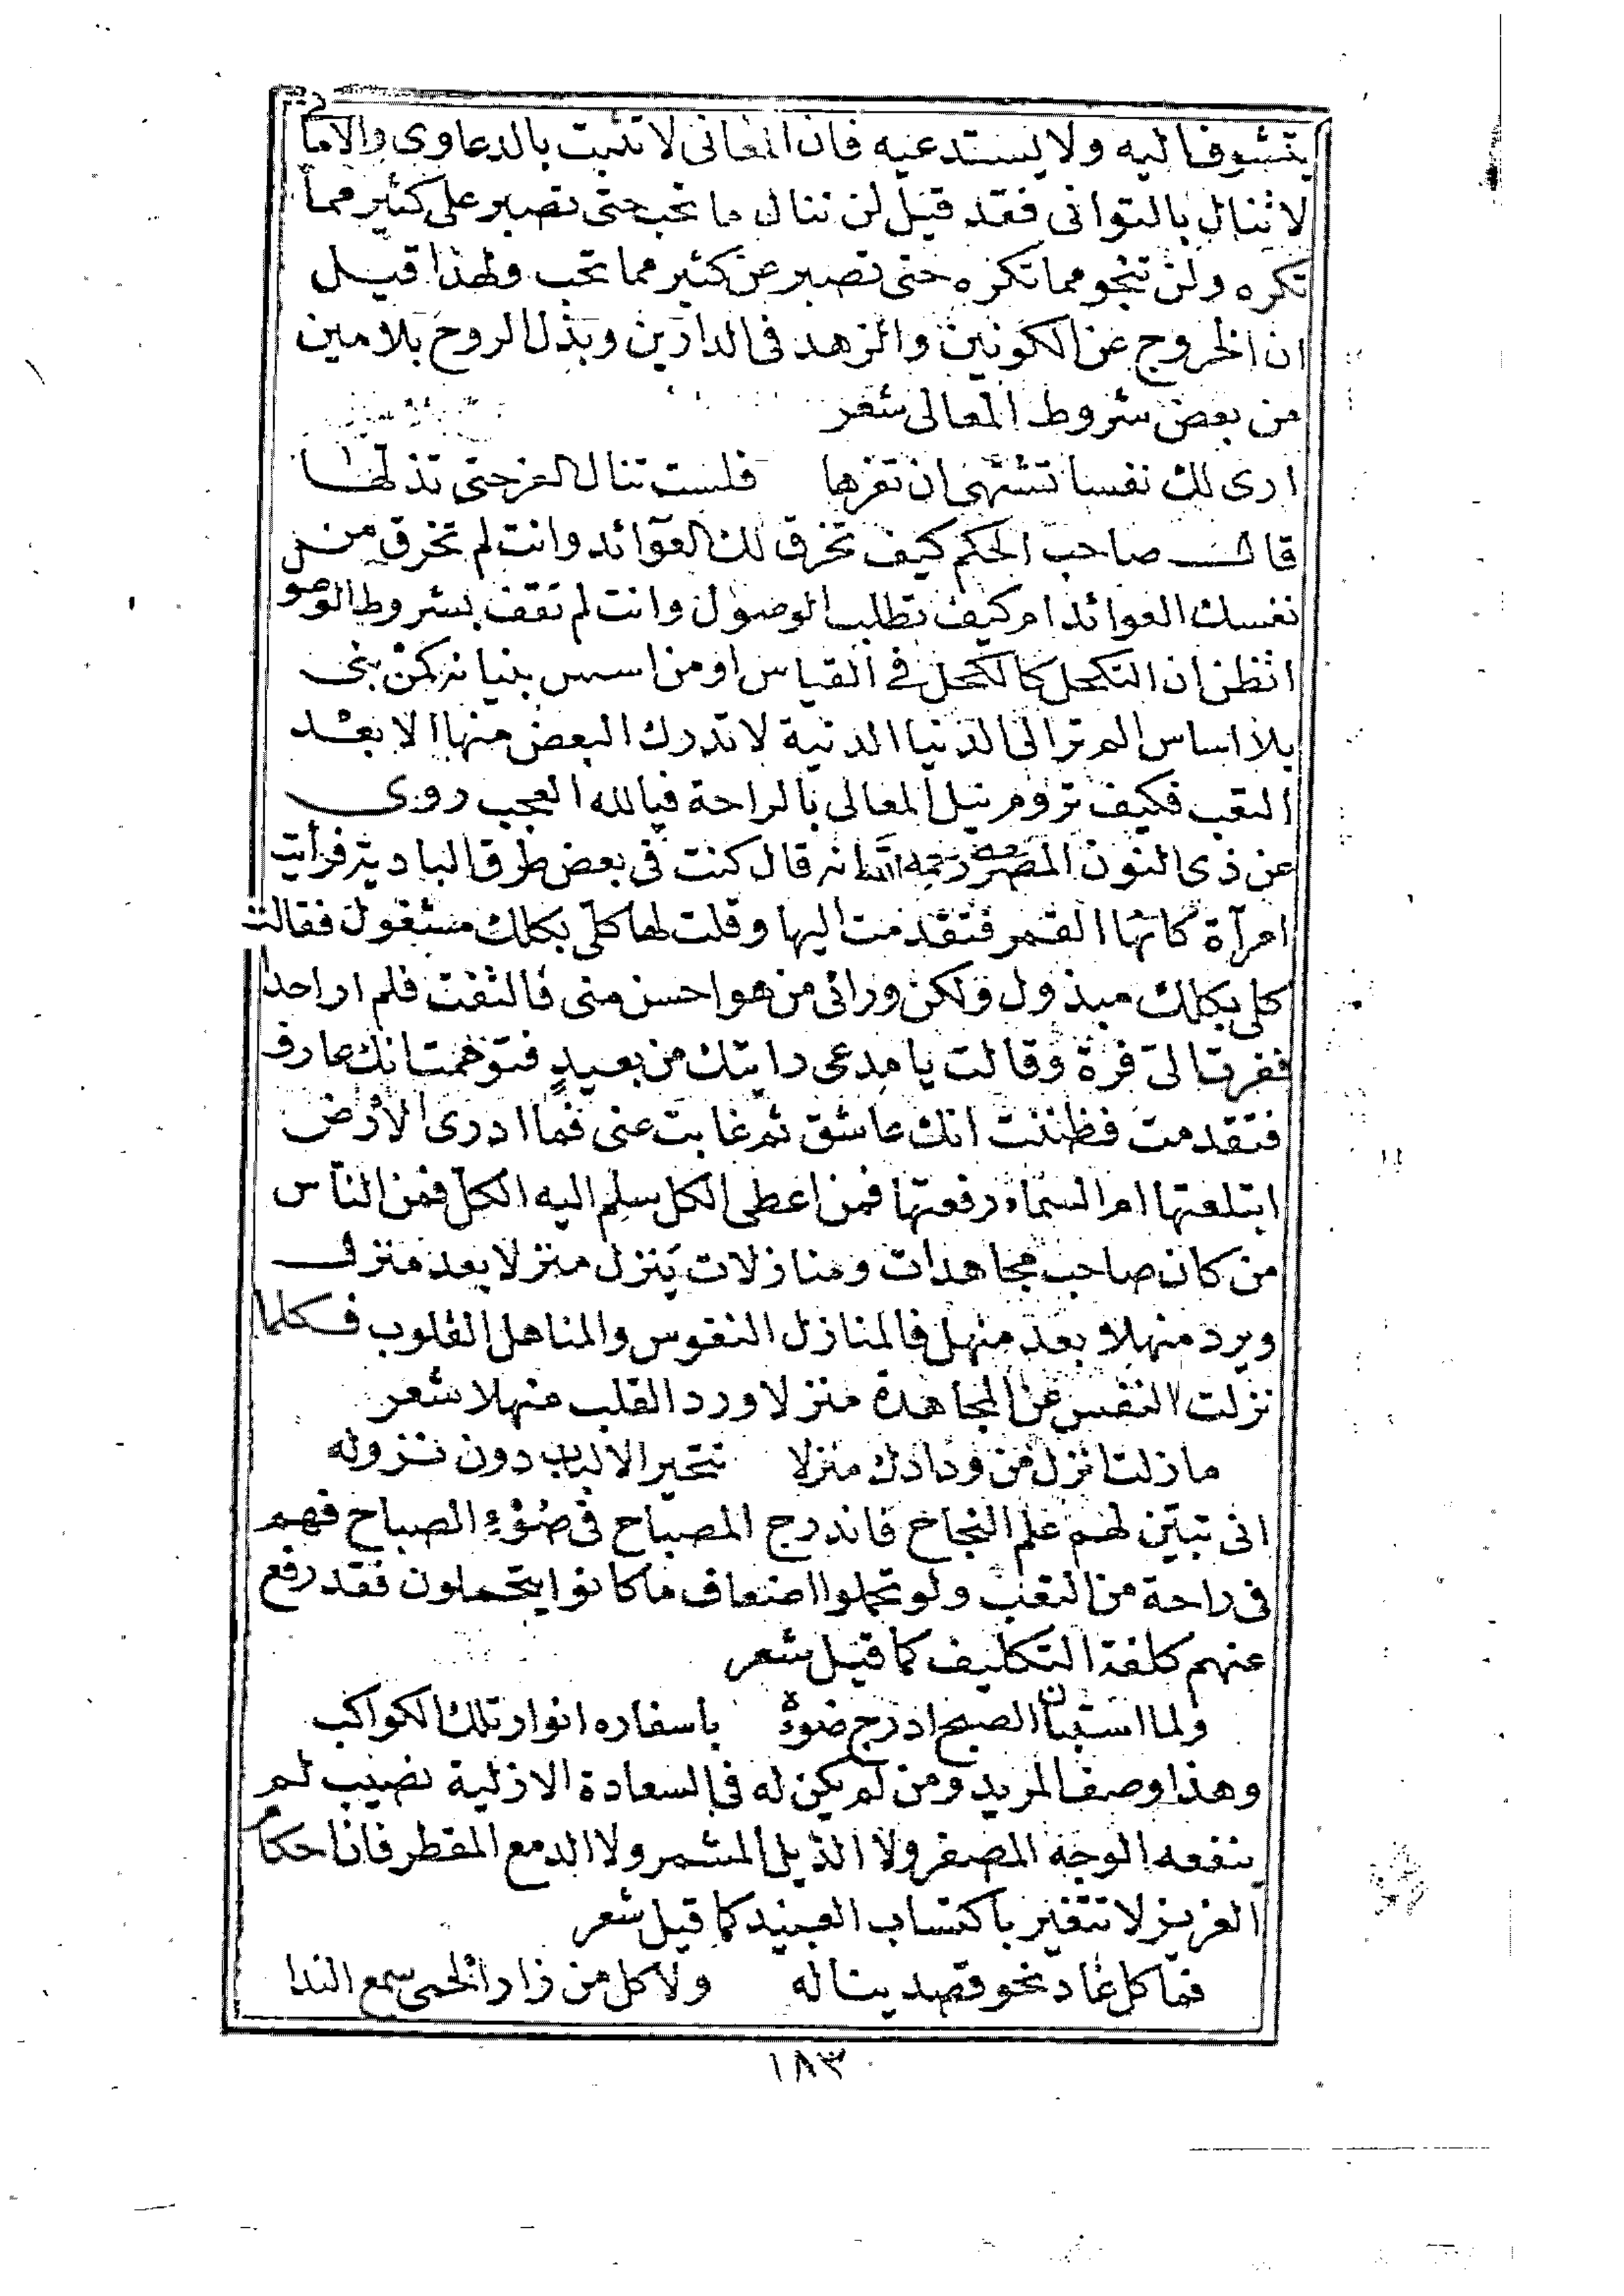 يتشوف اليه ولا يستدعيه فان المعانى لا تثبت بالدعاوى والاما
لا تنال بالتوانى فقد قيل لن تنال ما تحب حتى تصبر على كثير مما
تكره ولن تنجو مما تكره حتى تصبر عن كثير مما تحب ولهذا قيل
ان الخروج عن الكونين والزهد فى الدارين وبذل الروح بلا مين
من بعض شروط المعالى شعر
ارى لك نفسا تشتهى ان تعزها فلست تنال العز حتى تذلها
قال صاحب الحكم كيف تخرق لك العوائد وانت لم تخرق من
نفسك العوائد ام كيف تطلب الوصول وانت لم تقف بشروط الوصو
اتظن ان التكحل كالكحل فى القياس او من اسس بنيانه كمن بنى
بلا اساس الم تر الى الدنيا الدنية لا تدرك البعض منها الا بعد
التعب فكيف تروم نيل المعالى بالراحة فيالله العجب روى
عن ذى النون المصرى رحمه الله انه قال كنت فى بعض طرق البادية فرأيت
امرآة كانها القمر فتقدمت اليها وقلت لها كلى بكلك مشغول فقالت
كلى بكلك مبذول ولكن ورائى من هو احسن منى فالتفت فلم ار احدا
فقرت الىّ قرة وقالت يا مدعى رايتك من بعيدٍ فتوهمت انك عارف
فتقدمت فظننت انك عاشق ثم غابت عنى فما ادرى الأرض
ابتلعتها ام السماء رفعتها فمن اعطى الكل سلم اليه الكل فمن الناس
من كان صاحب مجاهدات ومنازلات ينزل منزلا بعد منزل
ويرد منهلا بعد منهل فالمنازل النفوس والمناهل القلوب فكلما
نزلت النفس عن المجاهدة منزلا ورد القلب منهلا شعر
ما زلت انزل من ودادك منزلا تتحير الالباب دون نزوله
انى تبين لهم علم النجاح فاندرج المصباح فى ضوء الصباح فهم
فى راحة من التعب ولو تحملوا اضعاف ما كانوا يتحملون فقد رفع
عنهم كلفة التكليف كما قيل شعر
ولما استبان الصبح ادرج ضوءه باسفاره انوار تلك الكواكب
وهذا وصف المريد ومن لم يكن له فى السعادة الازلية نصيب لم
ينفعه الوجه المصفر ولا الذيل المشمر ولا الدمع المقطر فان احكام
العزيز لا تتغير باكتساب العبيد كما قيل شعر
فما كل غاد نحو قصد يناله ولا كل من زار الحمى سمع الندا
١٨٣